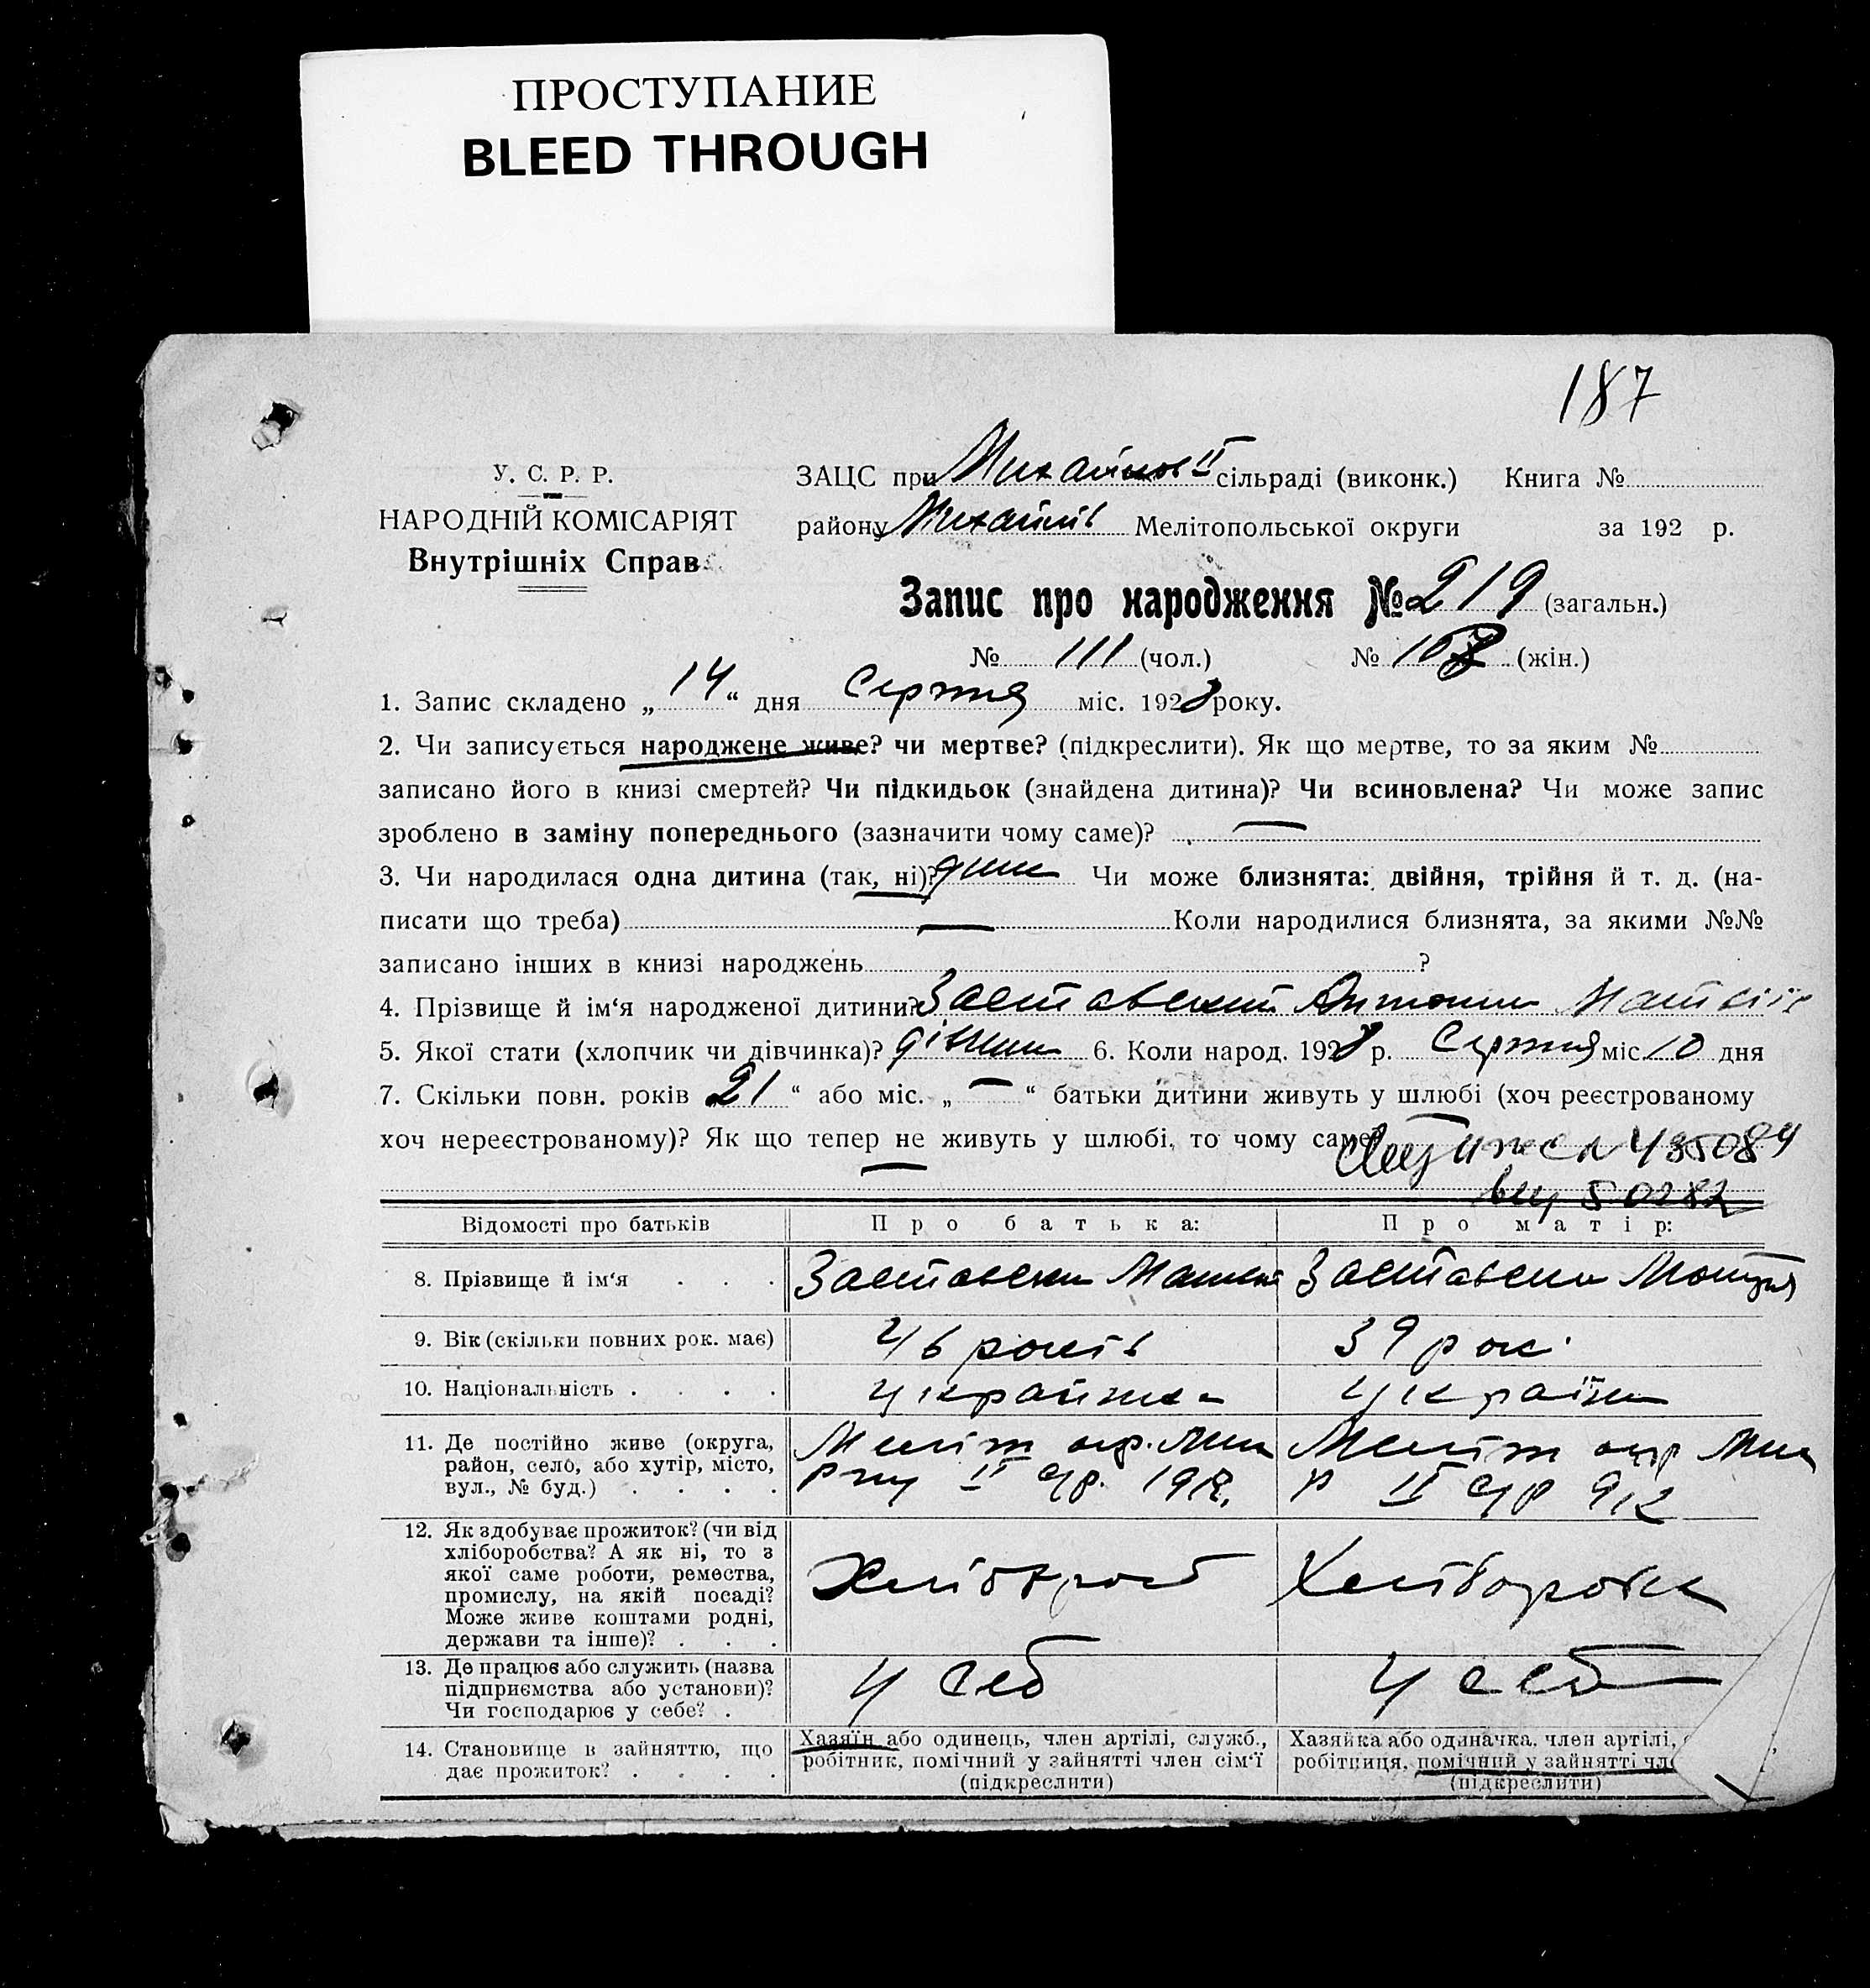 ПРОСТУПАНИЕ
BLEED THROUGH
187
У. С. Р. Р.
НАРОДНІЙ КОМІСАРІЯТ
Внутрішніх Справ
ЗАЦС при Михайлов II сільраді (виконк.) Книга №
району Михайлів Мелітопольської округи за 192 р.
Запис про народження № 219 (загальн.)
№ 111 (чол.) № 108 (жін.)
1. Запис складено „ 14 “ дня Серпня міс. 1928 року.
2. Чи записується народжене живе? чи мертве? (підкреслити). Як що мертве, то за яким №
записано його в книзі смертей? Чи підкидьок (знайдена дитина)? Чи всиновлена? Чи може запис
зроблено в заміну попереднього (зазначити чому саме)? —
3. Чи народилася одна дитина (так, ні)? Чи може близнята: двійня, трійня й т. д. (на-
писати що треба) — Коли народилися близнята, за якими №№
записано інших в книзі народжень ?
4. Прізвище й ім‘я народженої дитини?
5. Якої стати (хлопчик чи дівчинка)? 6. Коли народ. 1928 р. Серпня міс. 10 дня
7. Скільки повн. років „ 21 “ або міс. „ — “ батьки дитини живуть у шлюбі (хоч реєстрованому
хоч нереєстрованому)? Як що тепер не живуть у шлюбі, то чому саме?
Відомості про батьків Про батька: Про матір:
8. Прізвище й ім‘я . . .
9. Вік (скільки повних рок. має) 46 років 39 рок
10. Національність . . . .
11. Де постійно живе (округа,
район, село, або хутір, місто,
вул., № буд.) . . . .
Меліт окр. Мих Меліт окр Мих
12. Як здобуває прожиток? (чи від
хліборобства? А як ні, то з
якої саме роботи, ремества,
промислу, на якій посаді?
Може живе коштами родні,
держави та інше)? . . .
Хлібороб
13. Де працює або служить (назва
підприємства або установи)?
Чи господарює у себе? .
у себ у себ
14. Становище в зайняттю, що
дає прожиток? . . . .
Хазяїн або одинець, член артілі, служб.,
робітник, помічний у зайнятті член сім‘ї
(підкреслити)
Хазяйка або одиначка, член артілі,
робітниця, помічний у зайнятті
(підкреслити)